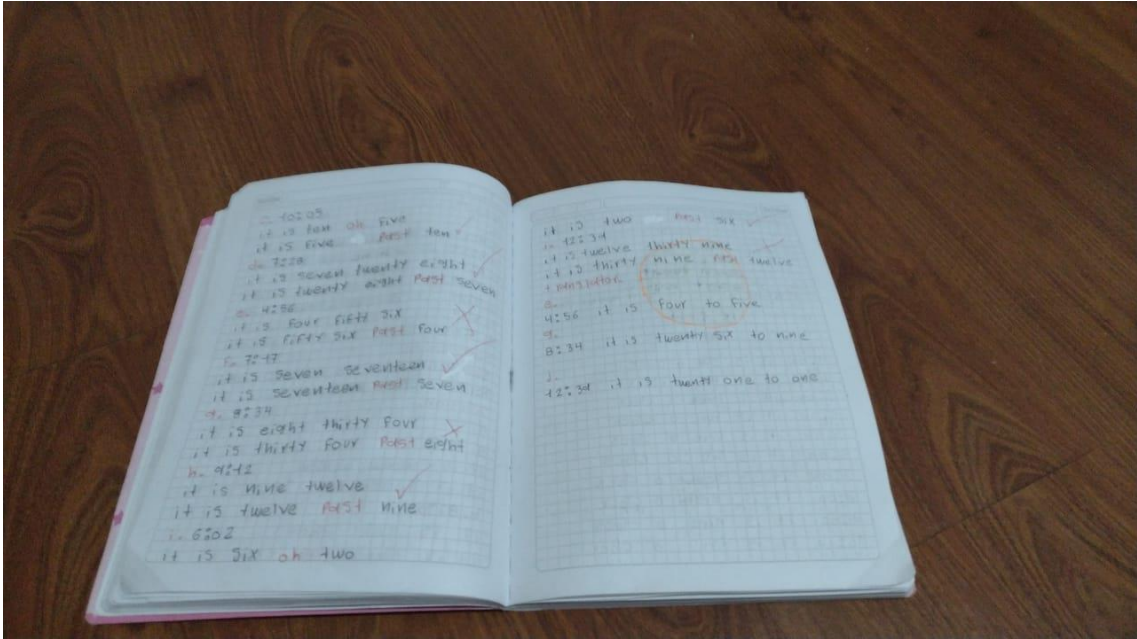 10:05
it is ten oh five
it is five past ten
d. 7:28
it is seven twenty eight
it is twenty eight past seven
e. 4:56
it is four fifty six
it is fifty six past four
f. 7:17
it is seven seventeen
it is seventeen past seven
g. 8:34
it is eight thirty four
it is thirty four past eight
h. 9:12
it is nine twelve
it is twelve past nine
i. 6:02
it is six oh two
it is two past six
j. 12:39
it is twelve thirty nine
it is thirty nine past twelve
e.
4:56 it is four to five
g.
8:34 it is twenty six to nine
j.
12:39 it is twenty one to one